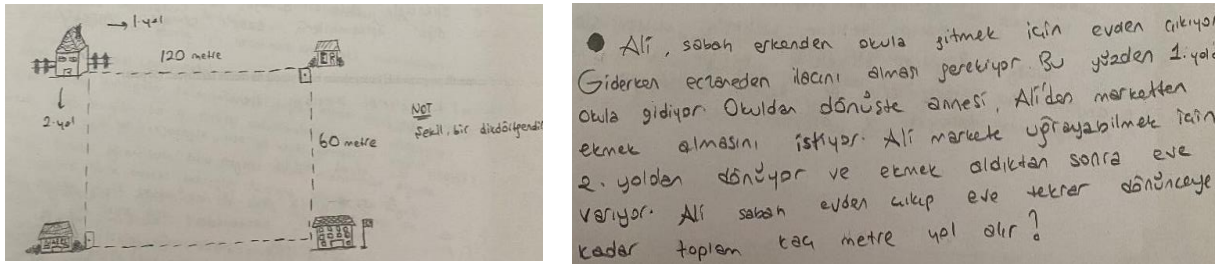 → 1.yol
120 metre
2.yol
60 metre
NOT
Şekil, bir dikdörtgendi
Ali, sabah erkenden okula gitmek için evden çıkıyor
Giderken eczaneden ilacını alması gerekiyor. Bu yüzden 1.yold
okula gidiyor. Okuldan dönüşte annesi, Ali'den marketten
ekmek almasını istiyor. Ali markete uğrayabilmek için
2. yoldan dönüyor ve ekmek aldıktan sonra eve
varıyor. Ali sabah evden çıkıp eve tekrar dönünceye
kadar toplam kaç metre yol alır?